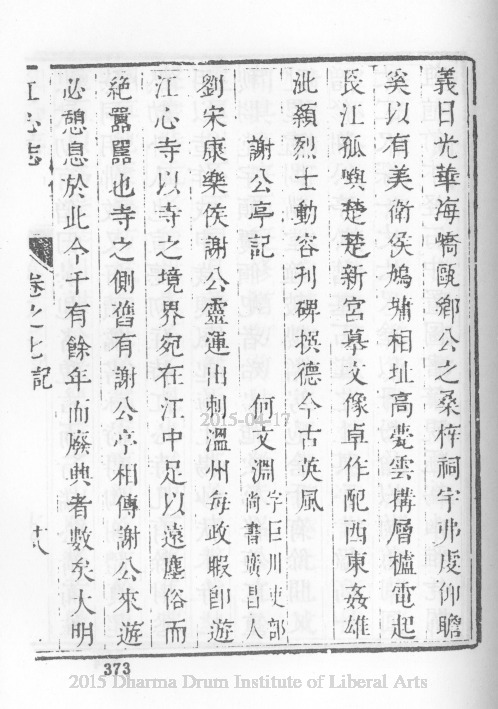 義日光華海嶠甌鄉公之桑梓祠宇弗虔仰瞻
奚以有美衛侯鳩墉相址高甍雲搆層櫨電起
長江孤嶼楚楚新宮摹文像卓作配西東姦雄
泚顙烈士動容刋碑撰德今古英風
謝公亭記
何文淵
字巨川吏部
尚書廣昌人
劉宋康樂侯謝公靈運出刺溫州每政暇卽遊
江心寺以寺之境界宛在江中足以遠塵俗而
絶囂嚣也寺之側舊有謝公亭相傳謝公來遊
必憩息於此今千有餘年而廢興者數矣大明
江心志
卷之七記
十八
2015-04-17
373
2015 Dharma Drum Institute of Liberal Arts